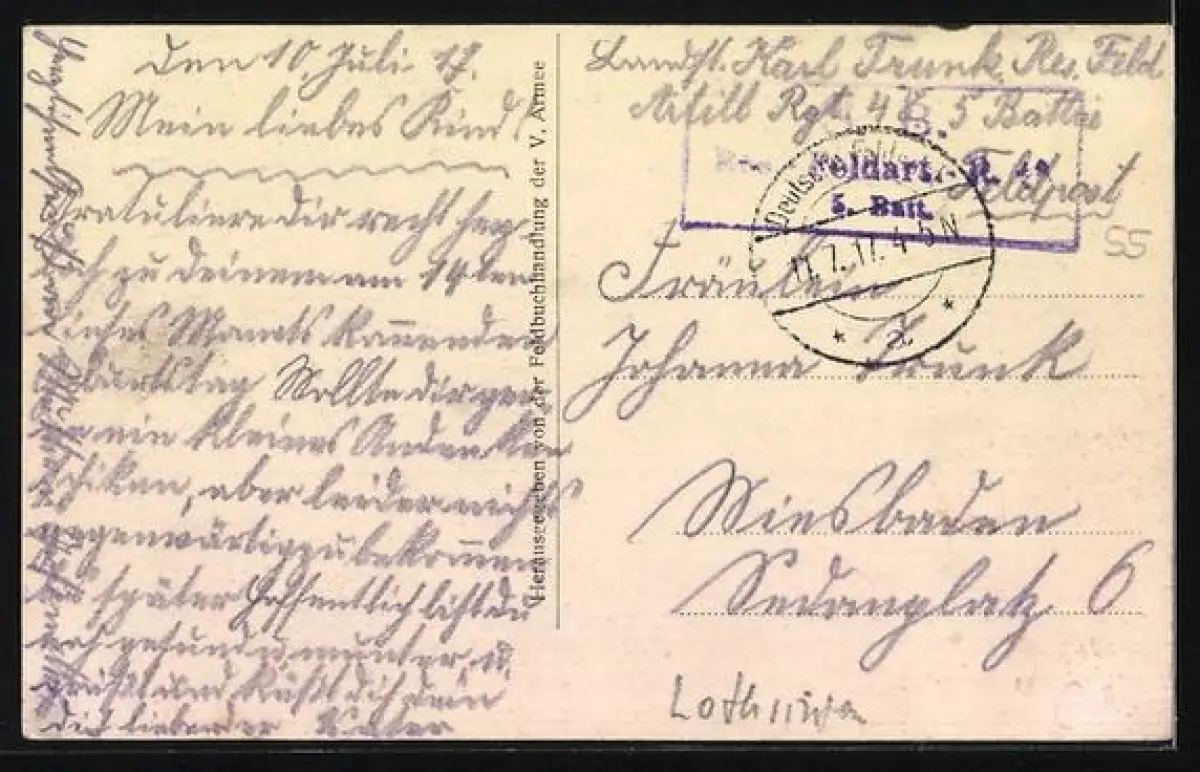 Den 10. Juli 17.
Mein liebes Kind!
Gratuliere dir recht herz
lich zu deinem am 19 ten
dieses Monats kommenden
Geburtstag Wollte dir ger
ne ein kleines Andenken
schiken, aber leider nichts
gegenwärtig zu bekommen
später Hoffentlich bist du
noch gesund u. munter, u.
grüßt und küßt dich dein
dich liebender Vater
Herausgegeben von der Feldbuchhandlung der V. Armee
Landst. Karl Trunk Res. Feld
Artill Rgt. 47 5 Battri
Feldpost
Feldart. R.
5. Batt.
Deutsche
11.7.17. 4-5 N
* a *
55
Fräulein
Johanna Trunk
Wiesbaden
Sedanplatz. 6
Lothringen